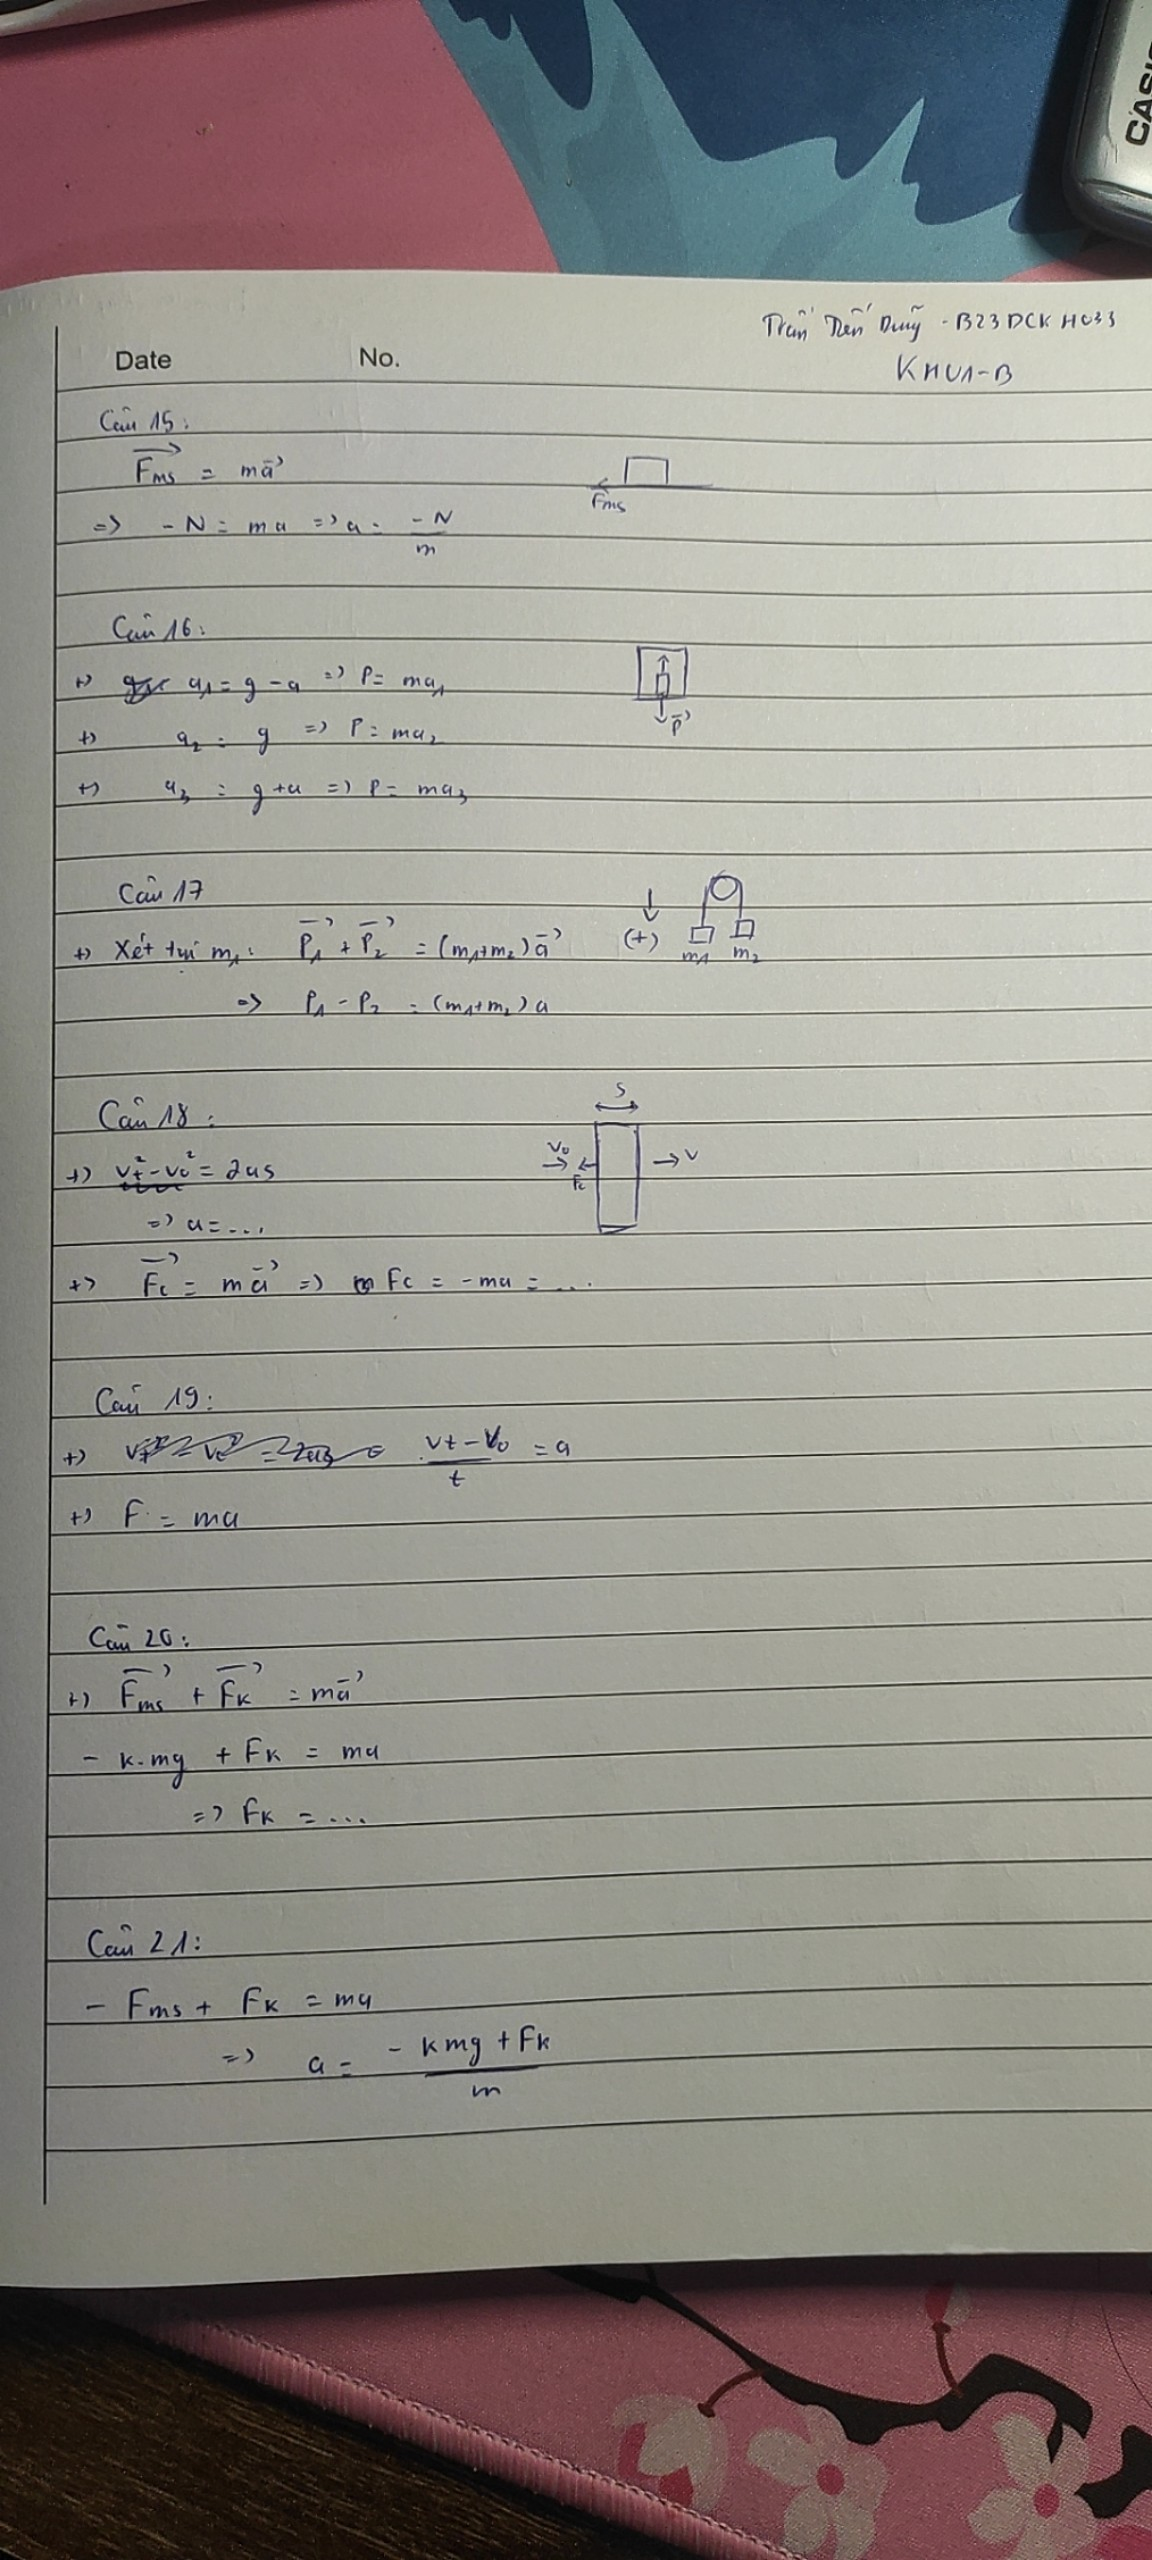 CASIO
Trần Tiến Duỹ - B23DCKH033
KHUA-B
Date No.
Câu 15:
Fms = ma
Fms
=> - N = ma => a = -N/m
Câu 16:
+) a1 = g - a => P = ma1
P
+) a2 = g => P = ma2
+) a3 = g + a => P = ma3
Câu 17
+) Xét tại m1: P1 + P2 = (m1+m2) a
(+) m1 m2
=> P1 - P2 = (m1+m2) a
S
Câu 18:
+) vt² - v0² = 2as
V0 Fc V
=> a = ...
+) Fc = ma => Fc = -ma = ...
Câu 19:
+) (vt - v0)/t = a
+) F = ma
Câu 20:
+) Fms + FK = ma
- k.mg + FK = ma
=> FK = ...
Câu 21:
- Fms + FK = ma
=> a = (- kmg + Fk)/m